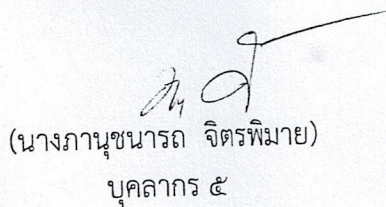 (นางภานุชนารถ จิตรพิมาย)
บุคลากร ๕